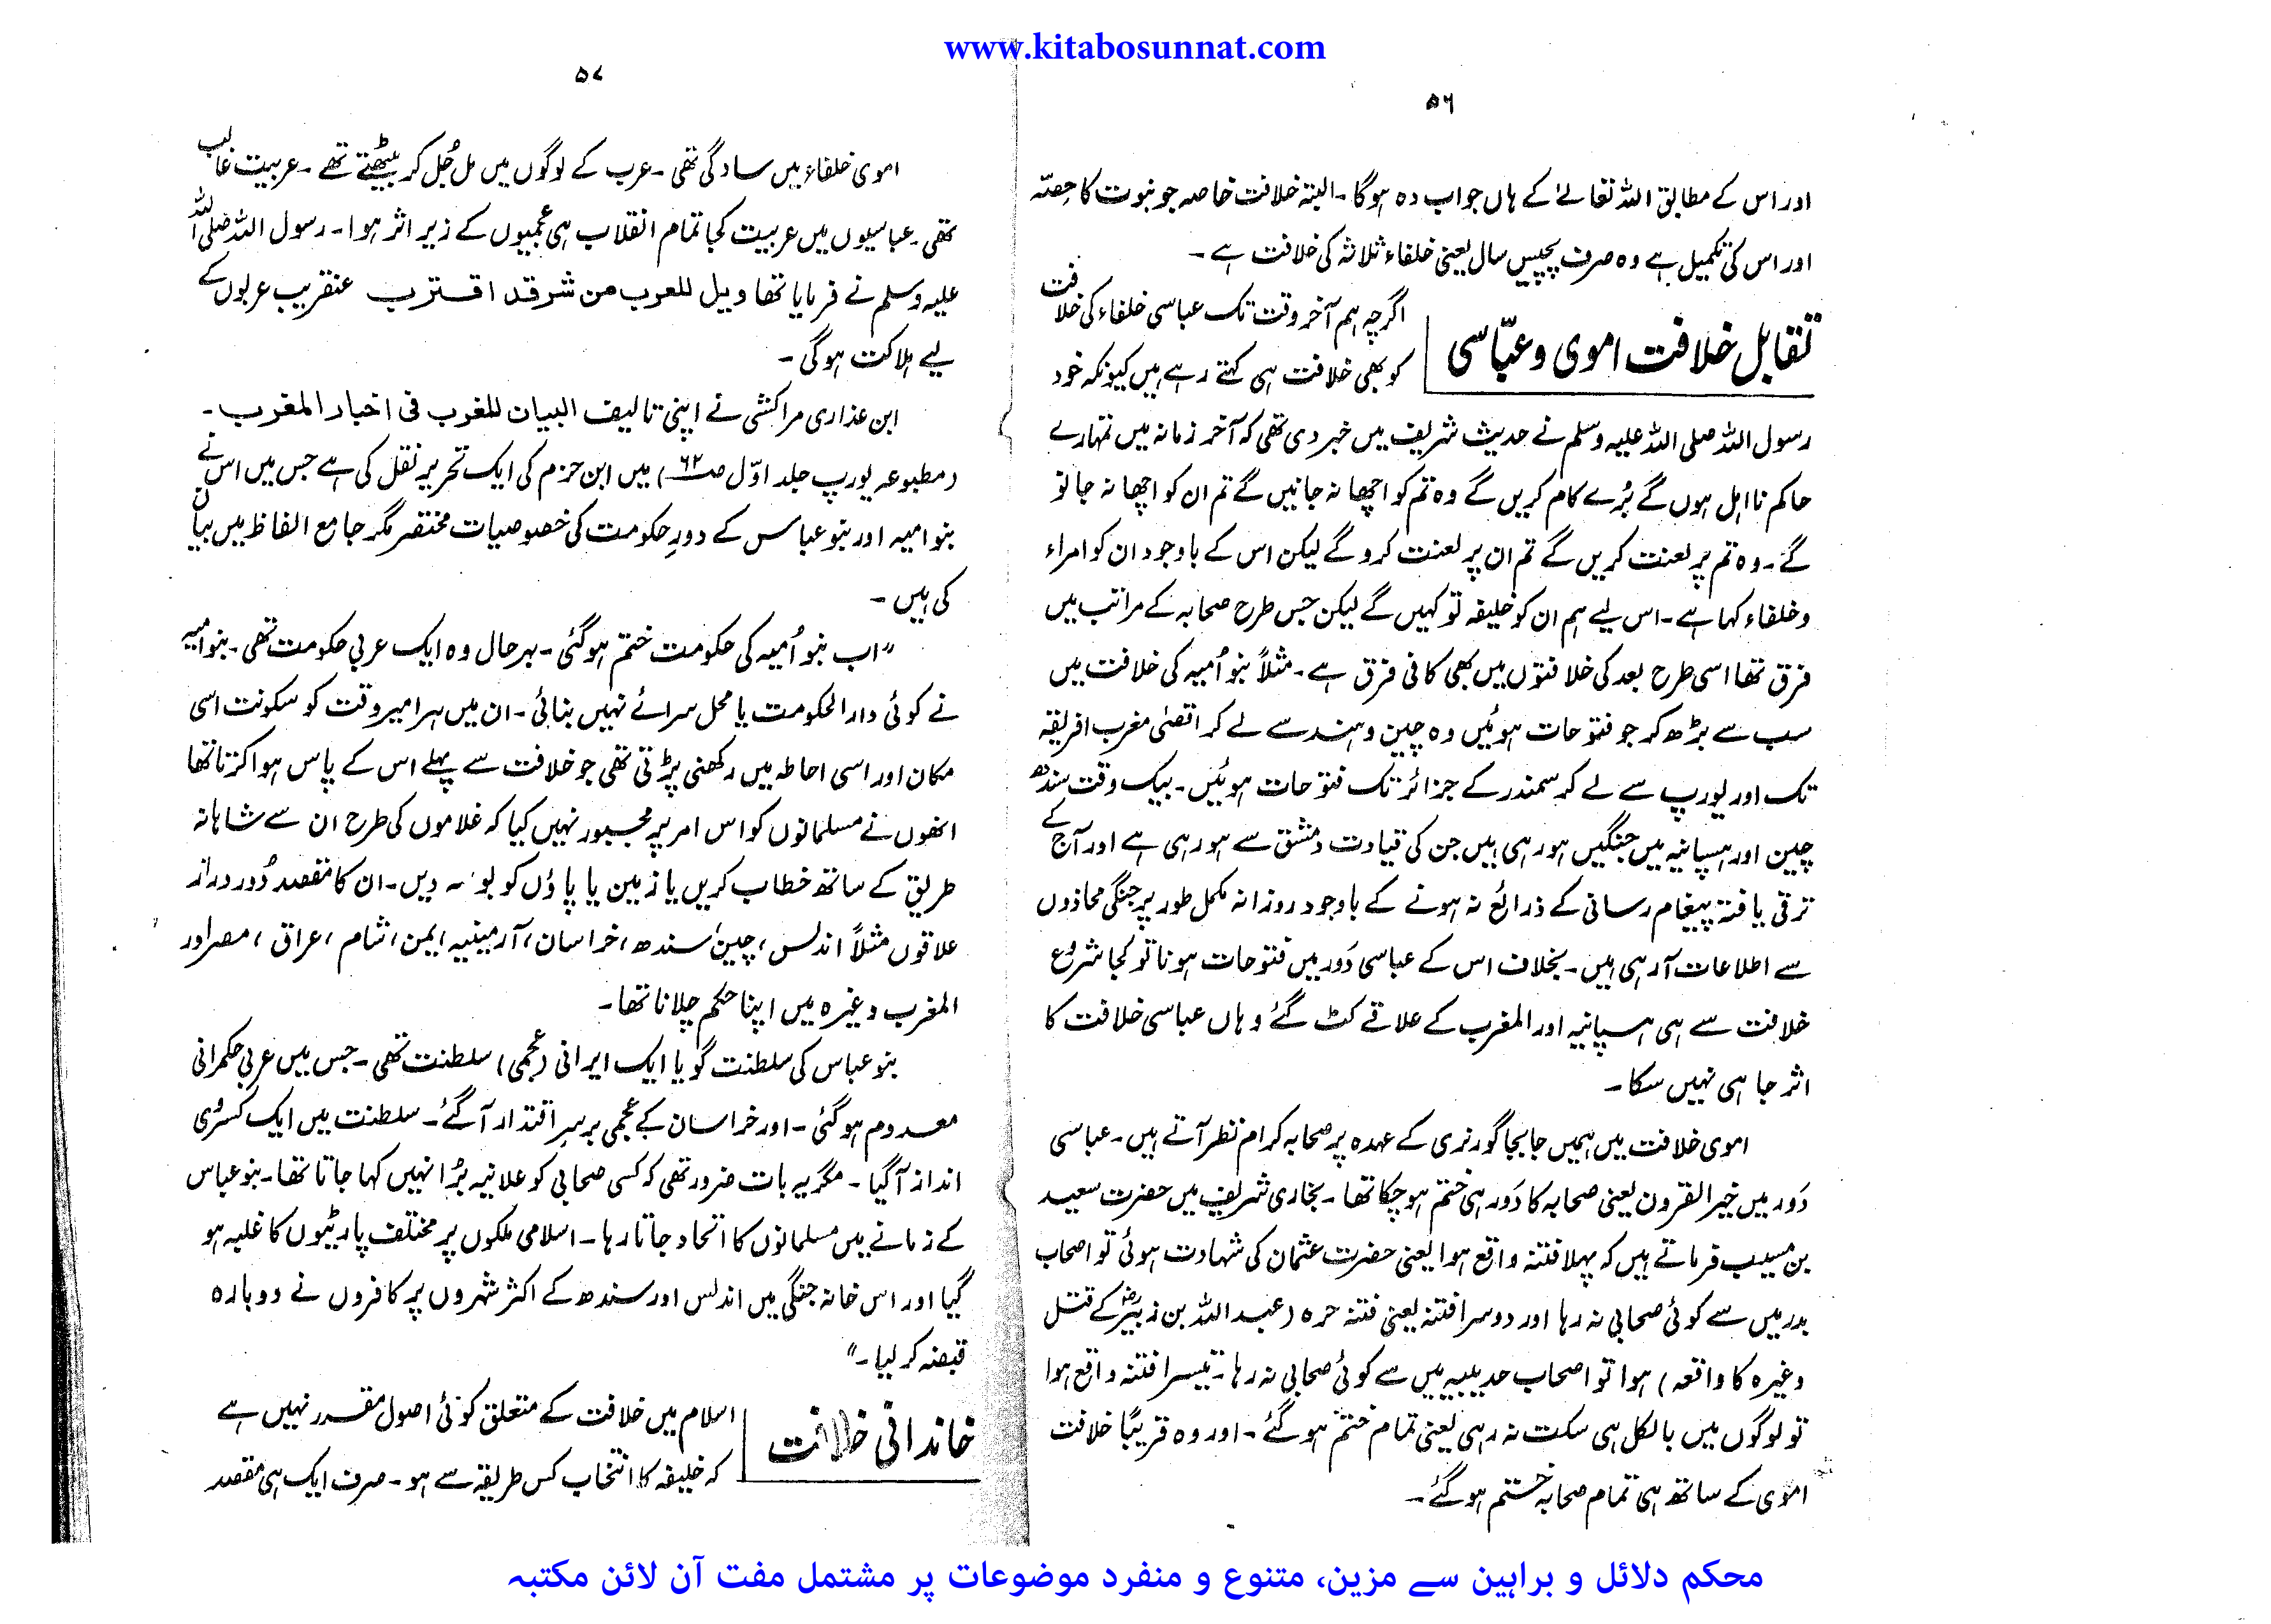 www.kitabosunnat.com
۵۶
اور اس کے مطابق اللہ تعالےٰ کے ہاں جواب دہ ہوگا۔ البتہ خلافت خاصہ جو نبوت کا حصّہ
اور اس کی تکمیل ہے وہ صرف پچیس سال یعنی خلفاء ثلاثہ کی خلافت ہے۔
تقابل خلافت اموی و عبّاسی
اگرچہ ہم آخر وقت تک عباسی خلفاء کی خلافت
کو بھی خلافت ہی کہتے رہے ہیں کیونکہ خود
رسول اللہ صلی اللہ علیہ وسلم نے حدیث شریف میں خبر دی تھی کہ آخر زمانہ میں تمہارے
حاکم نااہل ہوں گے بُرے کام کریں گے وہ تم کو اچھا نہ جانیں گے تم ان کو اچھا نہ جانو
گے۔ وہ تم پر لعنت کریں گے تم ان پر لعنت کرو گے لیکن اس کے باوجود ان کو امراء
و خلفاء کہا ہے۔ اس لیے ہم ان کو خلیفہ تو کہیں گے لیکن جس طرح صحابہ کے مراتب میں
فرق تھا اسی طرح بعد کی خلافتوں میں بھی کافی فرق ہے۔ مثلاً بنو اُمیہ کی خلافت میں
سب سے بڑھ کر جو فتوحات ہوئیں وہ چین و ہند سے لے کر اقصٰی مغرب افریقہ
تک اور یورپ سے لے کر سمندر کے جزائر تک فتوحات ہوئیں۔ بیک وقت سندھ
چین اور ہسپانیہ میں جنگیں ہو رہی ہیں جن کی قیادت دمشق سے ہو رہی ہے اور آج کے
ترقی یافتہ پیغام رسانی کے ذرائع نہ ہونے کے باوجود روزانہ مکمل طور پر جنگی محاذوں
سے اطلاعات آ رہی ہیں۔ بخلاف اس کے عباسی دَور میں فتوحات ہونا تو کجا شروع
خلافت سے ہی ہسپانیہ اور المغرب کے علاقے کٹ گئے وہاں عباسی خلافت کا
اثر جا ہی نہیں سکا۔
اموی خلافت میں ہمیں جابجا گورنری کے عہدہ پر صحابہ کرام نظر آتے ہیں۔ عباسی
دَور میں خیر القرون یعنی صحابہ کا دَور ہی ختم ہو چکا تھا۔ بخاری شریف میں حضرت سعید
بن مسیب فرماتے ہیں کہ پہلا فتنہ واقع ہوا یعنی حضرت عثمان کی شہادت ہوئی تو اصحاب
بدر میں سے کوئی صحابی نہ رہا اور دوسرا فتنہ یعنی فتنہ حرہ (عبداللہ بن زبیرؓ کے قتل
وغیرہ کا واقعہ) ہوا تو اصحاب حدیبیہ میں سے کوئی صحابی نہ رہا۔ تیسرا فتنہ واقع ہوا
تو لوگوں میں بالکل ہی سکت نہ رہی یعنی تمام ختم ہو گئے۔ اور وہ قریباً خلافت
اموی کے ساتھ ہی تمام صحابہ ختم ہو گئے۔
۵۷
اموی خلفاء میں سادگی تھی۔ عرب کے لوگوں میں مل جُل کر بیٹھتے تھے۔ عربیت غالب
تھی۔ عباسیوں میں عربیت کجا تمام انقلاب ہی عجمیوں کے زیر اثر ہوا۔ رسول اللہ صلی اللہ
علیہ وسلم نے فرمایا تھا ویل للعرب من شر قد اقترب عنقریب عربوں کے
لیے ہلاکت ہوگی۔
ابن عذاری مراکشی نے اپنی تالیف البیان للغرب فی اخبار المغرب۔
(مطبوعہ یورپ جلد اوّل صـ۶۲) میں ابن حزم کی ایک تحریر نقل کی ہے جس میں اس نے
بنو امیہ اور بنو عباس کے دورِ حکومت کی خصوصیات مختصر مگر جامع الفاظ میں بیان
کی ہیں۔
"اب بنو اُمیہ کی حکومت ختم ہوگئی۔ بہر حال وہ ایک عربی حکومت تھی۔ بنو امیہ
نے کوئی دارالحکومت یا محل سرائے نہیں بنائی۔ ان میں ہر امیر وقت کو سکونت اسی
مکان اور اسی احاطہ میں رکھنی پڑتی تھی جو خلافت سے پہلے اس کے پاس ہوا کرتا تھا
انھوں نے مسلمانوں کو اس امر پر مجبور نہیں کیا کہ غلاموں کی طرح ان سے شاہانہ
طریق کے ساتھ خطاب کریں یا زمین یا پاؤں کو بوسہ دیں۔ ان کا مقصد دُور دراز
علاقوں مثلاً اندلس، چین، سندھ، خراسان، آرمینیہ، یمن، شام، عراق، مصر اور
المغرب وغیرہ میں اپنا حکم چلانا تھا۔
بنو عباس کی سلطنت گویا ایک ایرانی (عجمی) سلطنت تھی۔ جس میں عربی حکمرانی
معدوم ہوگئی۔ اور خراسان کے عجمی برسرِ اقتدار آگئے۔ سلطنت میں ایک کسرٰوی
انداز آگیا۔ مگر یہ بات ضرور تھی کہ کسی صحابی کو علانیہ بُرا نہیں کہا جاتا تھا۔ بنو عباس
کے زمانے میں مسلمانوں کا اتحاد جاتا رہا۔ اسلامی ملکوں پر مختلف پارٹیوں کا غلبہ ہو
گیا اور اس خانہ جنگی میں اندلس اور سندھ کے اکثر شہروں پر کافروں نے دوبارہ
قبضہ کر لیا۔"
خاندانی خلافت
اسلام میں خلافت کے متعلق کوئی اصول مقرر نہیں ہے
کہ خلیفہ کا انتخاب کس طریقہ سے ہو۔ صرف ایک ہی مقصد
محکم دلائل و براہین سے مزین، متنوع و منفرد موضوعات پر مشتمل مفت آن لائن مکتبہ